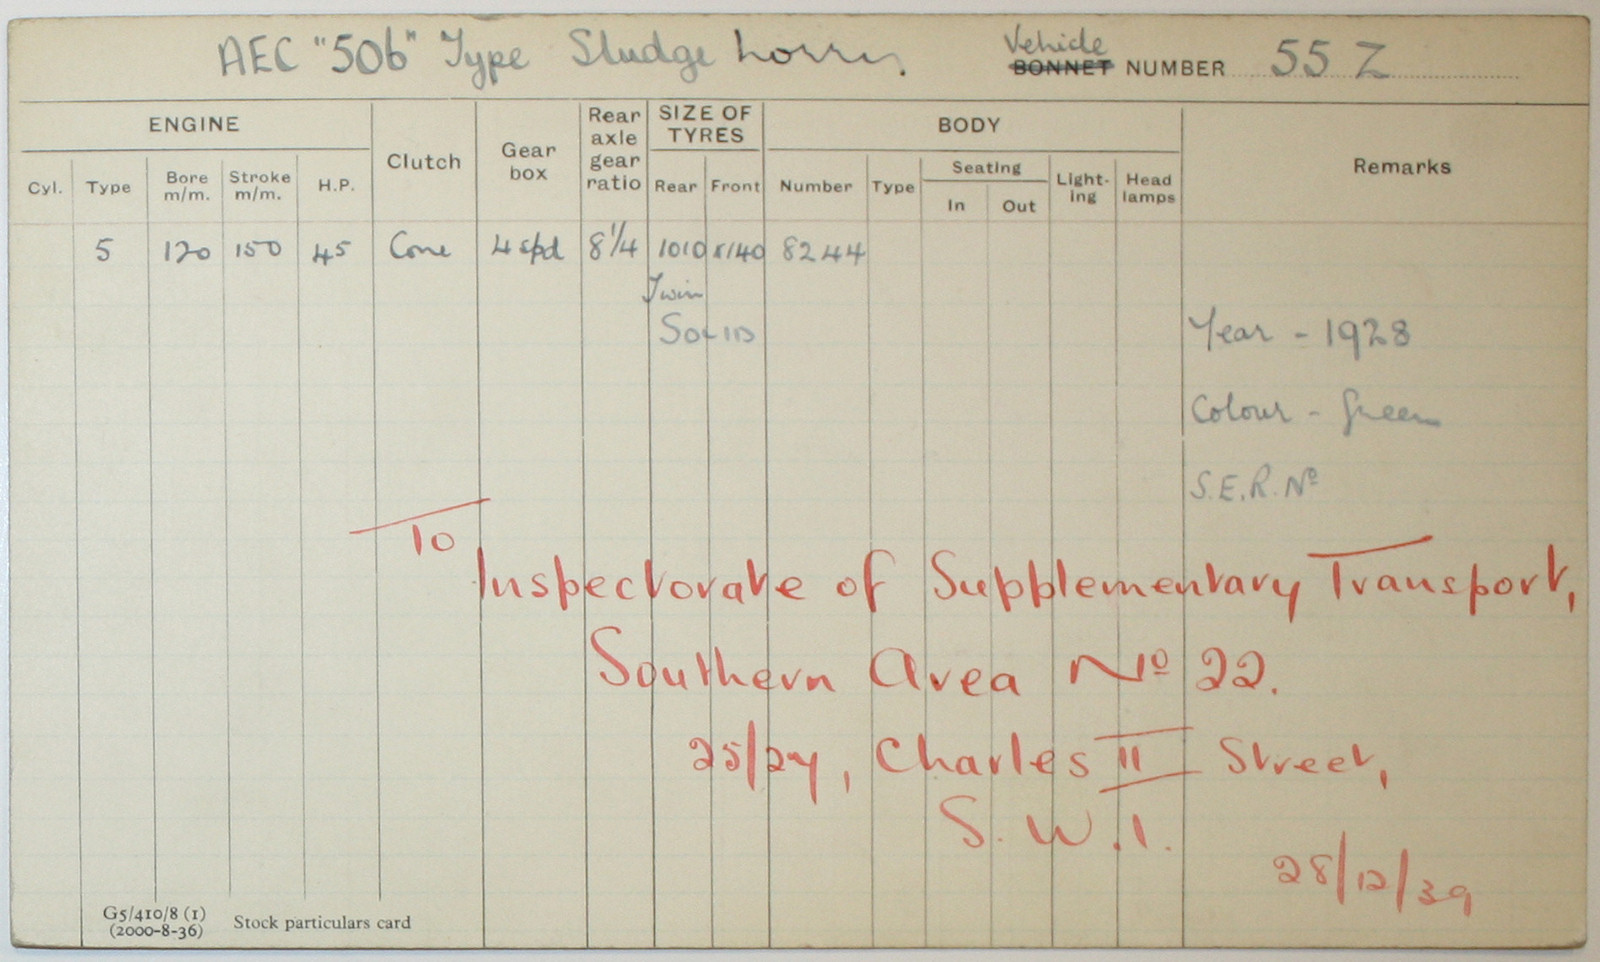 AEC "506" Type Sludge Lorry.
Vehicle
BONNET NUMBER 55 Z
ENGINE
Clutch
Gear box
Rear axle gear ratio
SIZE OF TYRES
BODY
Remarks
Cyl. Type Bore m/m. Stroke m/m. H.P. Rear Front Number Type Seating In Out Light-ing Head lamps
5 120 150 45 Cone 4 spd 8 1/4 1010 x/140 8244
Twin
SOLID
Year - 1928
Colour - Green
S.E.R. Nº
To
Inspectorate of Supplementary Transport,
Southern Area Nº 22.
25/27, Charles II Street,
S.W.1.
28/12/39
G5/410/8 (1)
(2000-8-36)
Stock particulars card